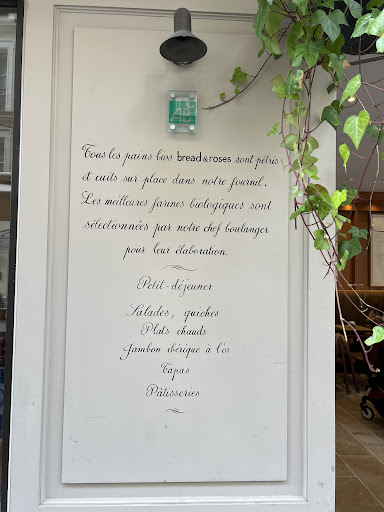 AB
Tous les pains bios bread & roses sont pétris
et cuits sur place dans notre fournil.
Les meilleures farines biologiques sont
sélectionnées par notre chef boulanger
pour leur élaboration.
Petit-déjeuner
Salades, quiches
Plats chauds
Jambon ibérique à l'os
Tapas
Pâtisseries